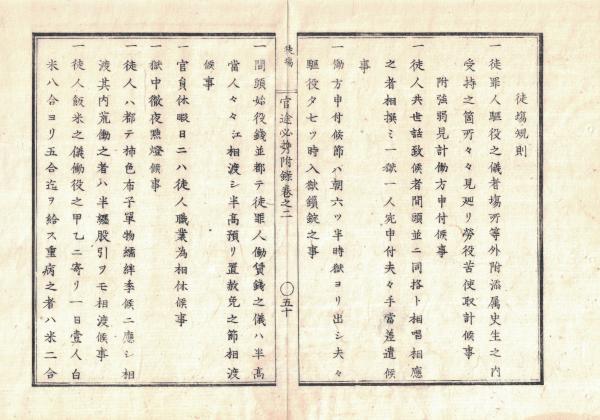 徒場規則
一徒罪人駆役之儀者場所等外附添属史生之内
受持之箇所々々見廻リ労役苦使取計候事
附強弱見計働方申付候事
一徒人共世話致候者間頭並ニ同格ト相唱相應
之者相撰ミ一獄一人宛申付夫々手當差遣候
事
一働方申付候節ハ朝六ツ半時獄ヨリ出シ夫々
駆役夕七ツ時入獄鎖錠之事
徒場
官途必携附錄卷之二
〇五十
一間頭始役錢並都テ徒罪人働賃錢之儀ハ半高
當人々々江相渡シ半高預リ置赦免之節相渡
候事
一官員休暇日ニハ徒人職業為相休候事
一獄中徹夜點燈候事
一徒人ハ都テ柿色布子單物繻絆季候ニ應シ相
渡其内荒働之者ハ半纒股引ヲモ相渡候事
一徒人飯米之儀働役之甲乙ニ寄リ一日壹人白
米八合ヨリ五合迄ヲ給ス重病之者ハ米二合